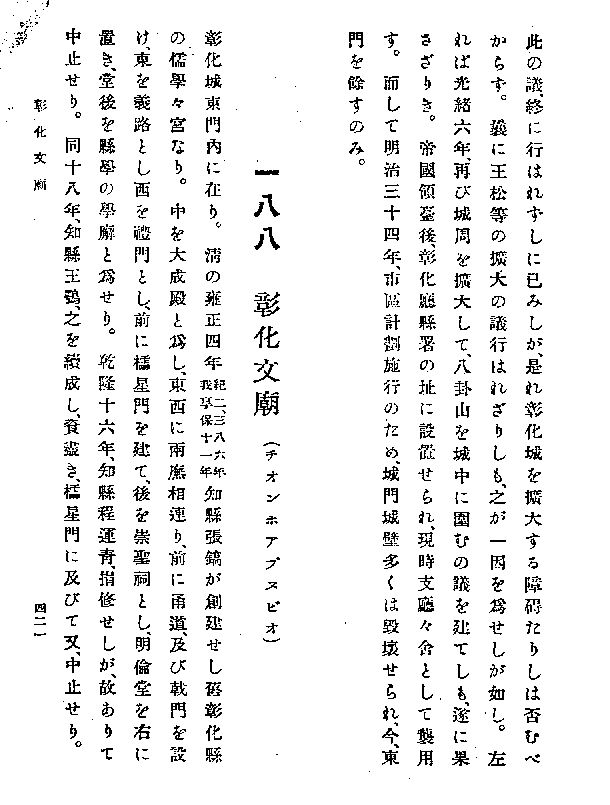 此の議、終に行はれずしに已みしが、是れ彰化城を擴大する障碍たりしは否むべ
からず。曩に王松等の擴大の議行はれざりしも、之が一因を爲せしが如し。左
れば光緒六年、再び城周を擴大して、八卦山を城中に圍むの議を建てしも、遂に果
さざりき。帝國領臺後、彰化廳縣署の址に設置せられ、現時支廳々舍として襲用
す。而して明治三十四年、市區計劃施行のため、城門城壁多くは毀壞せられ、今、東
門を餘すのみ。
一八八 彰化文廟（チオンホアブヌビオ）
彰化城東門內に在り。淸の雍正四年紀二、三八六年我享保十一年知縣張鎬が創建せし舊彰化縣
の儒學々宮なり。中を大成殿と爲し、東西に兩廡相連り、前に甬道、及び戟門を設
け、東を義路とし西を禮門とし、前に櫺星門を建て、後を崇聖祠とし、明倫堂を右に
置き、堂後を縣學の學廨と爲せり。乾隆十六年、知縣程運靑、捐修せしが、故ありて
中止せり。同十八年、知縣王鶚、之を續成し、資盡き、櫺星門に及びて又、中止せり。
彰化文廟
四二一